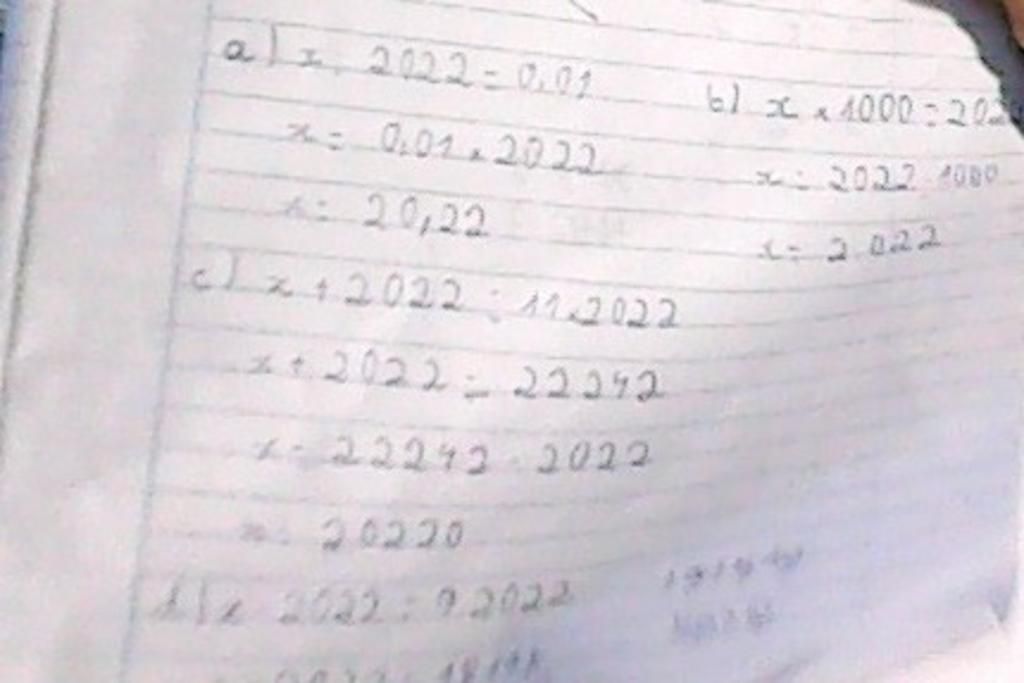 a) x : 2022 = 0,01
x = 0,01 x 2022
x = 20,22
b) x x 1000 = 202
x = 2022 : 1000
x = 2.022
c) x + 2022 = 11 x 2022
x + 2022 = 22242
x = 22242 - 2022
x = 20220
x 2022 = 9 2022